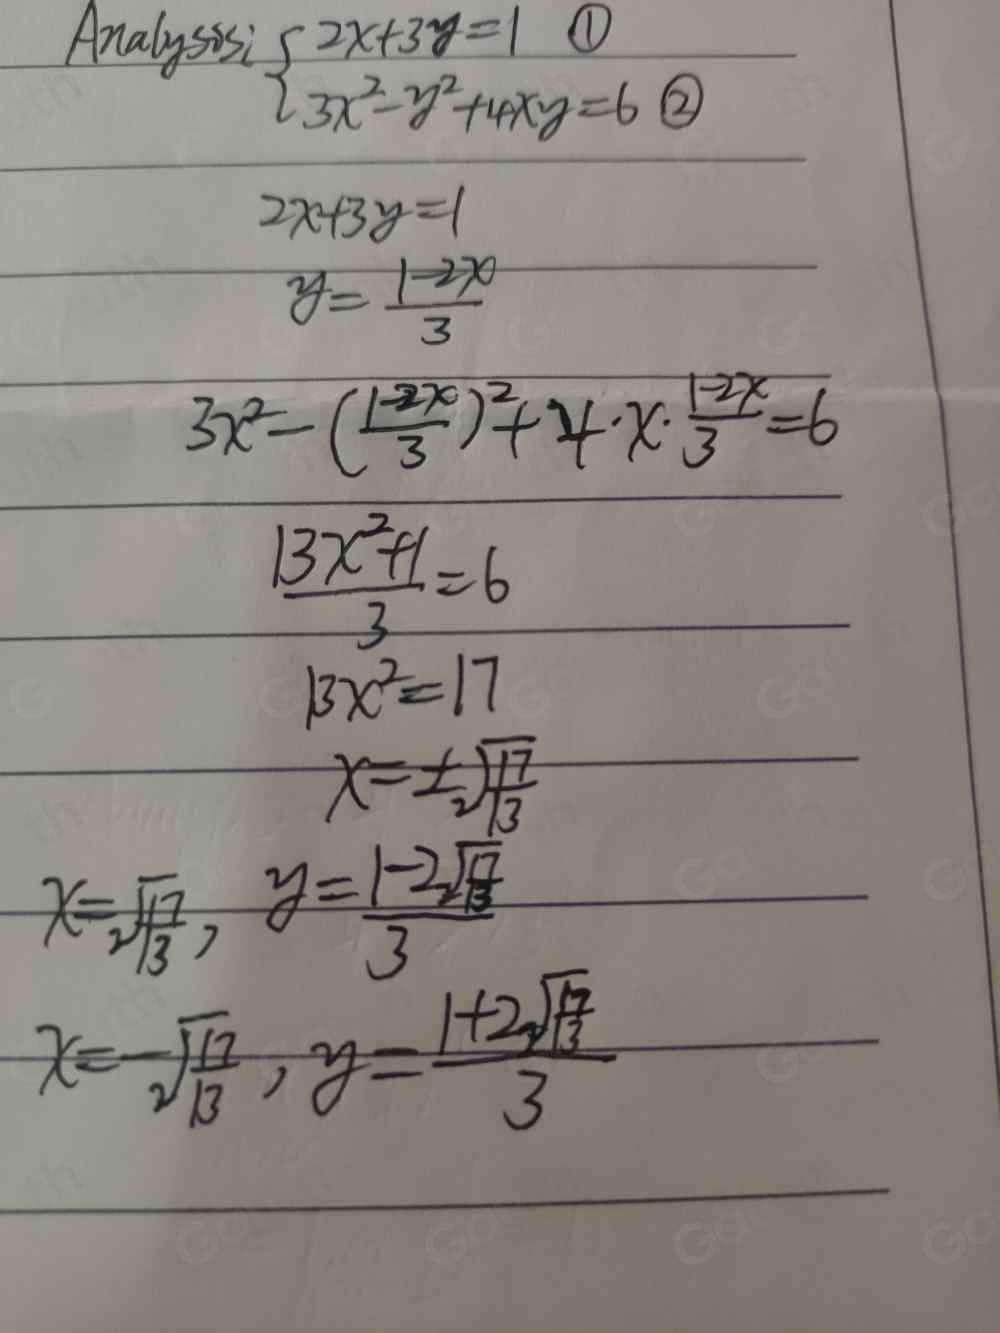 Analysis: { 2x+3y=1 ①
3x²-y²+4xy=6 ②
2x+3y=1
y=\frac{1-2x}{3}
3x²-(\frac{1-2x}{3})²+4·x·\frac{1-2x}{3}=6
\frac{13x²+1}{3}=6
13x²=17
x=±\sqrt[2]{\frac{17}{13}}
x=\sqrt[2]{\frac{17}{13}}, y=\frac{1-2\sqrt[2]{\frac{17}{13}}}{3}
x=-\sqrt[2]{\frac{17}{13}}, y=\frac{1+2\sqrt[2]{\frac{17}{13}}}{3}